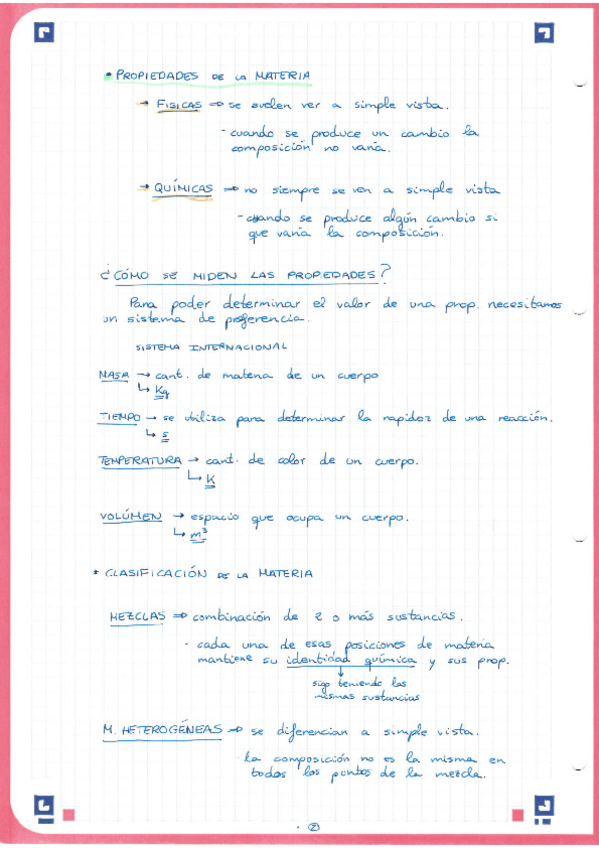 • PROPIEDADES DE LA MATERIA
→ FISICAS ⇒ se suelen ver a simple vista.
- cuando se produce un cambio la
composición no varía.
→ QUÍMICAS ⇒ no siempre se ven a simple vista
- cuando se produce algún cambio si
que varía la composición.
¿CÓMO SE MIDEN LAS PROPEDADES?
Para poder determinar el valor de una prop. necesitamos
un sistema de preferencia.
SISTEMA INTERNACIONAL
MASA → cant. de materia de un cuerpo
↳ Kg
TIEMPO → se utiliza para determinar la rapidez de una reacción.
↳ s
TEMPERATURA → cant. de calor de un cuerpo.
↳ K
VOLÚMEN → espacio que ocupa un cuerpo.
↳ m³
• CLASIFICACIÓN DE LA MATERIA
MEZCLAS ⇒ combinación de 2 o más sustancias.
- cada una de esas posiciones de materia
mantiene su identidad química y sus prop.
↓
sigo teniendo las
mismas sustancias
M. HETEROGÉNEAS ⇒ se diferencian a simple vista.
- la composición no es la misma en
todos los puntos de la mezcla.
· ②